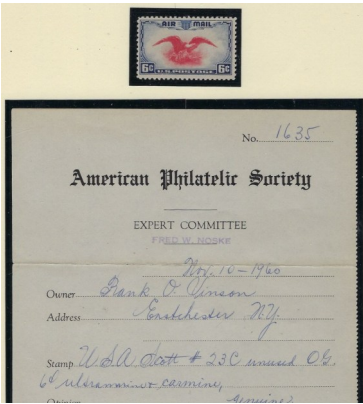 AIR MAIL
6¢ 6¢
U.S. POSTAGE
No. 1635
American Philatelic Society
EXPERT COMMITTEE
FRED W. NOSKE
Nov. 10 - 1960
Owner Frank O. Vinson
Address Eastchester NY
Stamp U.S.A. Scott # 23C unused O.G.
6¢ ultramarine & carmine,
Opinion Genuine